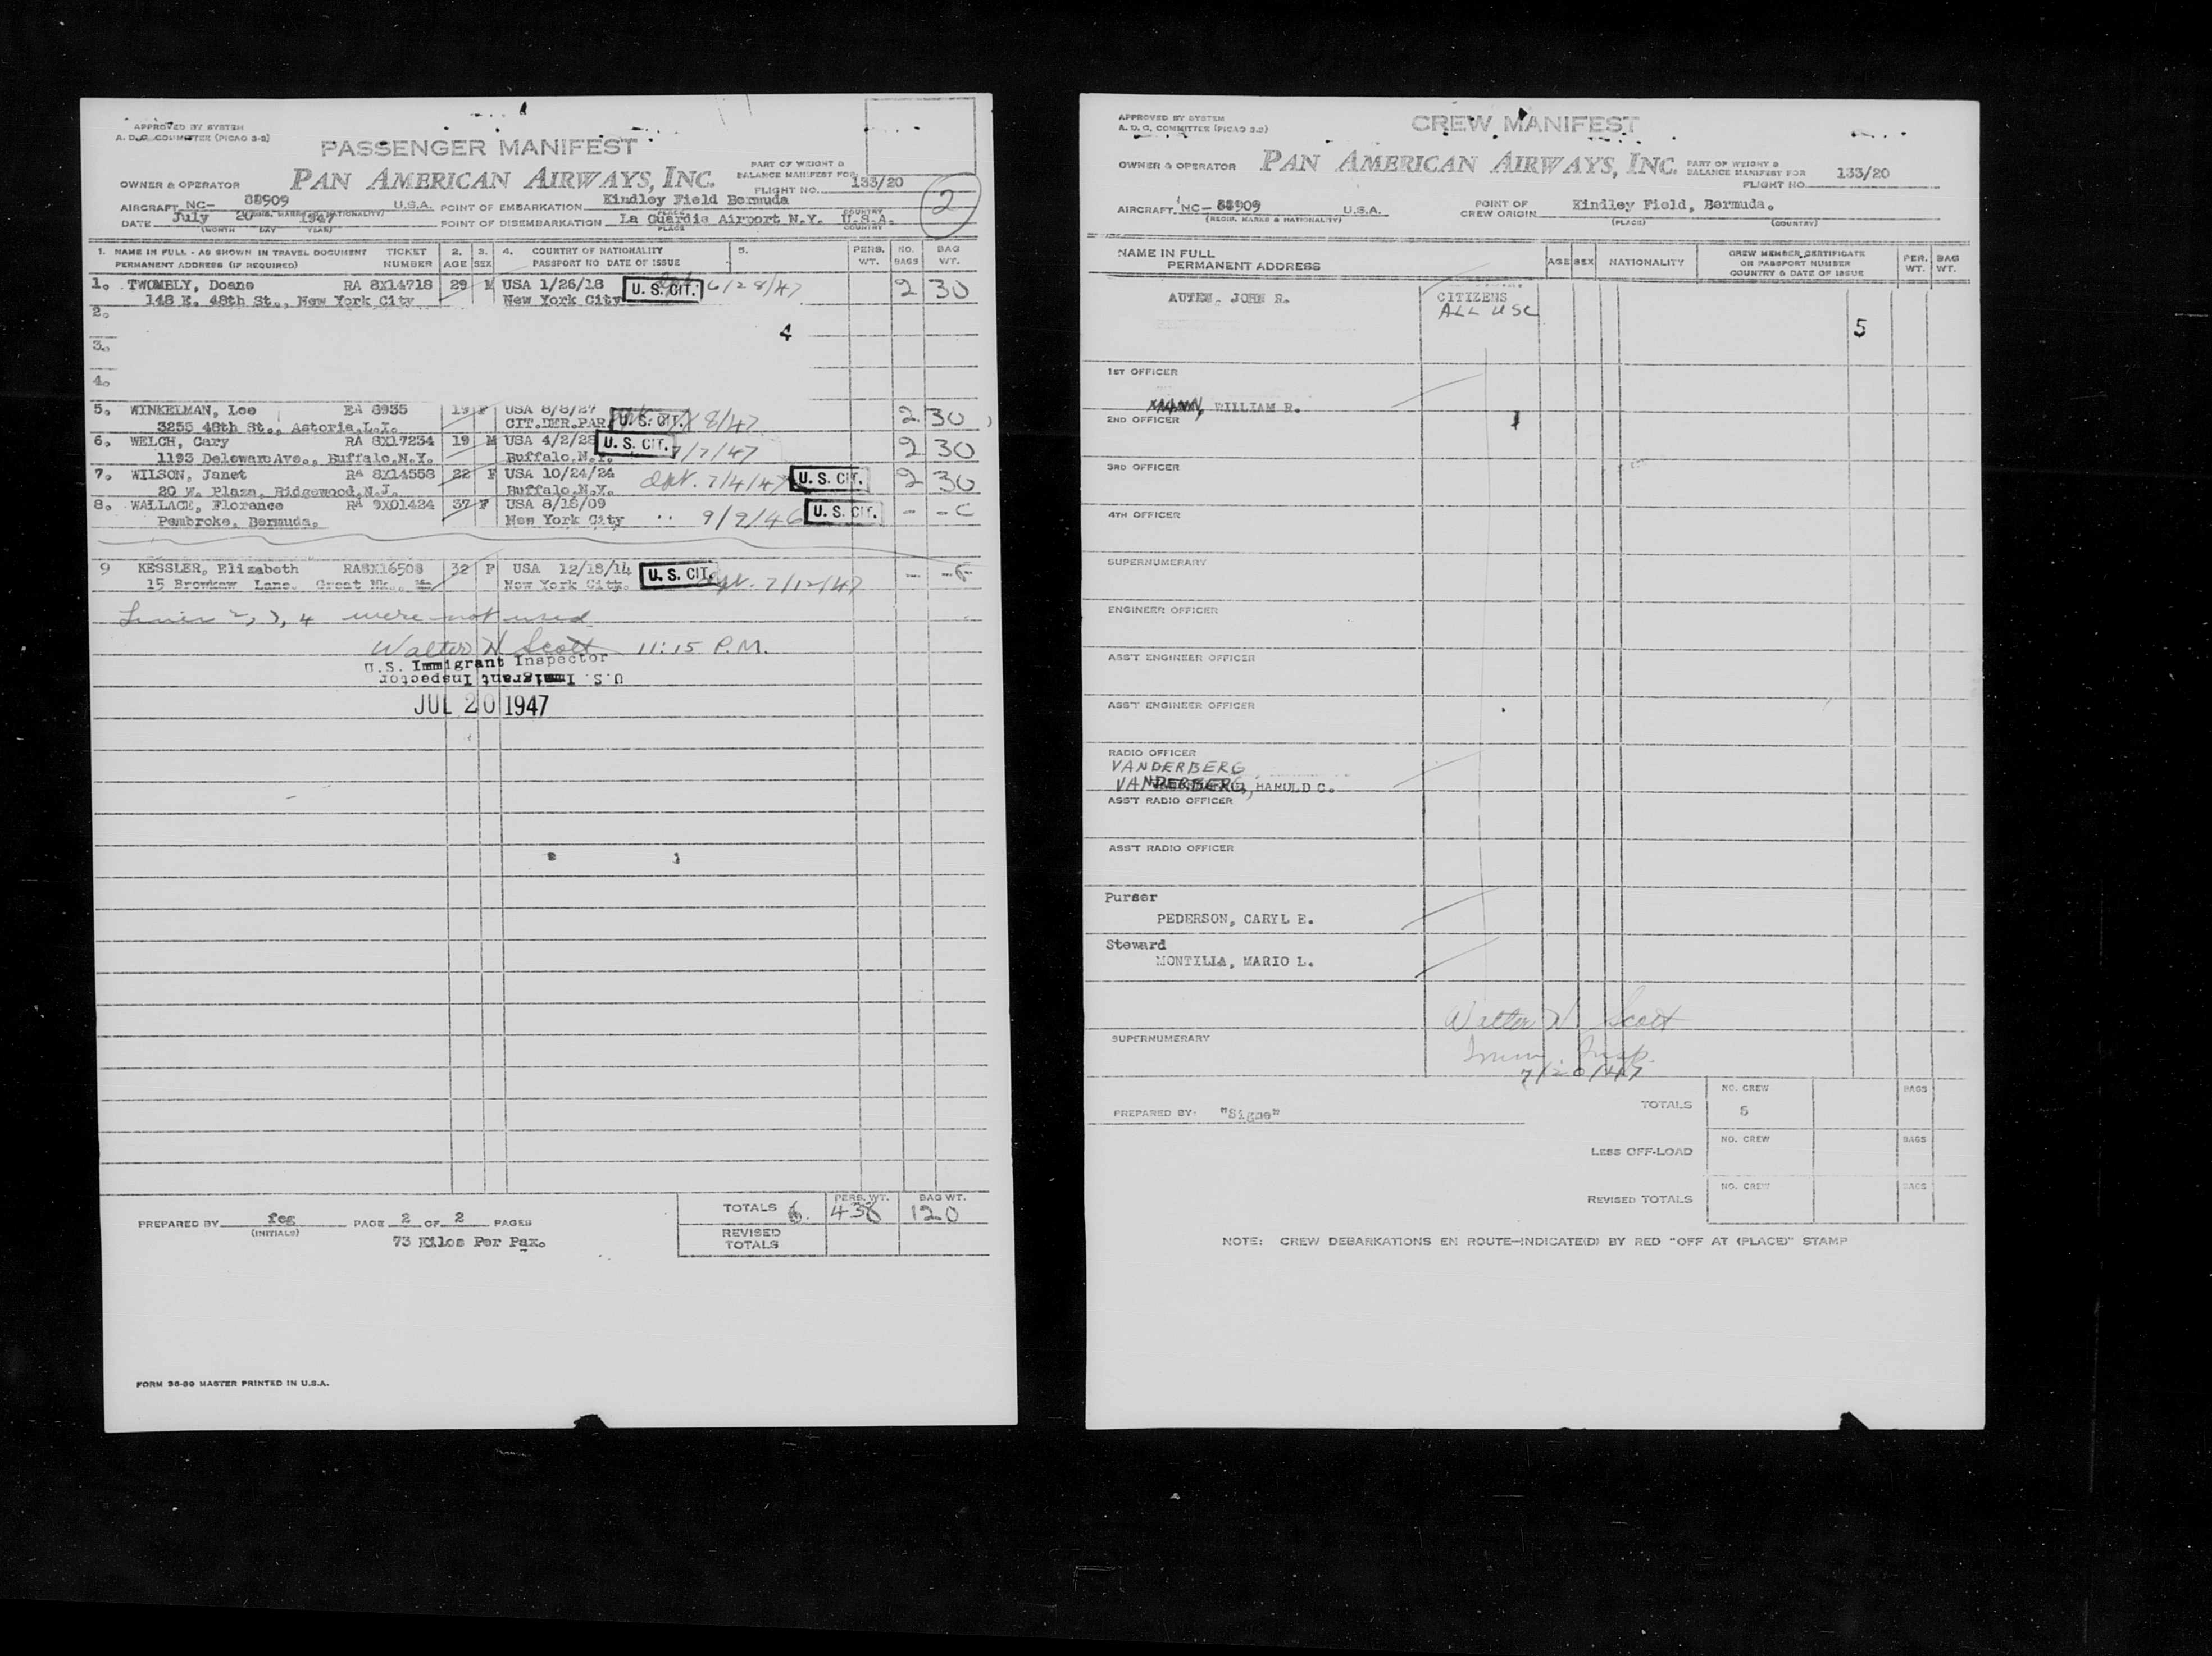 APPROVED BY SYSTEM
A. D. C. COMMITTEE (PICAO 3-2)
PASSENGER MANIFEST
OWNER & OPERATOR PAN AMERICAN AIRWAYS, INC.
PART OF WEIGHT &
BALANCE MANIFEST FOR
FLIGHT NO. 133/20
2
AIRCRAFT NC- 88909 U.S.A. POINT OF EMBARKATION Kindley Field Bermuda
DATE July 20 1947 POINT OF DISEMBARKATION La Guardia Airport N.Y. U.S.A.
(MONTH DAY YEAR) PLACE COUNTRY
1. NAME IN FULL - AS SHOWN IN TRAVEL DOCUMENT TICKET 2. 3. 4. COUNTRY OF NATIONALITY 5. PERS. NO. BAG
PERMANENT ADDRESS (IF REQUIRED) NUMBER AGE SEX PASSPORT NO DATE OF ISSUE WT. BAGS WT.
1. TWOMBLY, Doane RA 8X14718 29 M USA 1/26/18 U. S. CIT. 6/28/47 2 30
148 E. 48th St., New York City New York City
2.
4
3.
4.
5. WINKELMAN, Lee EA 8935 19 F USA 8/8/27 U. S. CIT. 8/47 2 30
3255 48th St., Astoria,L.I. CIT.DER.PAR.
6. WELCH, Cary RA 8X17234 19 M USA 4/2/28 U. S. CIT. 7/7/47 2 30
1193 DelewareAve., Buffalo,N.Y. Buffalo,N.Y.
7. WILSON, Janet RA 8X14558 22 F USA 10/24/24 Dpt. 7/4/47 U. S. CIT. 2 30
20 W. Plaza, Ridgewood,N.J. Buffalo,N.Y.
8. WALLACE, Florence RA 9X01424 37 F USA 8/18/09 9/9/46 U. S. CIT. - - C
Pembroke, Bermuda. New York City
9 KESSLER, Elizabeth RA8X16508 32 F USA 12/18/14 U. S. CIT. Dpt. 7/12/47 -
15 Browkaw Lane. Great Nk., New York City.
Lines 2, 3, 4 were not used
Walter H Scott 11:15 P.M.
U.S. Immigrant Inspector
U.S. Immigrant Inspector
JUL 20 1947
TOTALS 6. PERS. WT. 438 BAG WT. 120
REVISED TOTALS
PREPARED BY feg PAGE 2 OF 2 PAGES
(INITIALS)
73 Kilos Per Pax.
FORM 36-89 MASTER PRINTED IN U.S.A.
APPROVED BY SYSTEM
A. D. C. COMMITTEE (PICAO 3.2)
CREW MANIFEST
OWNER & OPERATOR PAN AMERICAN AIRWAYS, INC.
PART OF WEIGHT &
BALANCE MANIFEST FOR
FLIGHT NO. 133/20
AIRCRAFT NC- 88909 U.S.A. POINT OF CREW ORIGIN Kindley Field, Bermuda.
(REGIS. MARKS & NATIONALITY) (PLACE) (COUNTRY)
NAME IN FULL
PERMANENT ADDRESS AGE SEX NATIONALITY
CREW MEMBER CERTIFICATE
OR PASSPORT NUMBER
COUNTRY & DATE OF ISSUE
PER. WT. BAG WT.
AUTEN, JOHN R. CITIZENS
ALL USC
5
1ST OFFICER
MANN, WILLIAM R.
2ND OFFICER
3RD OFFICER
4TH OFFICER
SUPERNUMERARY
ENGINEER OFFICER
ASS'T ENGINEER OFFICER
ASS'T ENGINEER OFFICER
RADIO OFFICER
VANDERBERG
VANDERBERG, HAROLD C.
ASS'T RADIO OFFICER
ASS'T RADIO OFFICER
Purser
PEDERSON, CARYL E.
Steward
MONTILLA, MARIO L.
Walter H. Scott
SUPERNUMERARY
Imm. Insp.
7/20/47
PREPARED BY: "Signe"
TOTALS NO. CREW 5 BAGS
LESS OFF-LOAD NO. CREW BAGS
REVISED TOTALS NO. CREW BAGS
NOTE: CREW DEBARKATIONS EN ROUTE-INDICATE(D) BY RED "OFF AT (PLACE)" STAMP